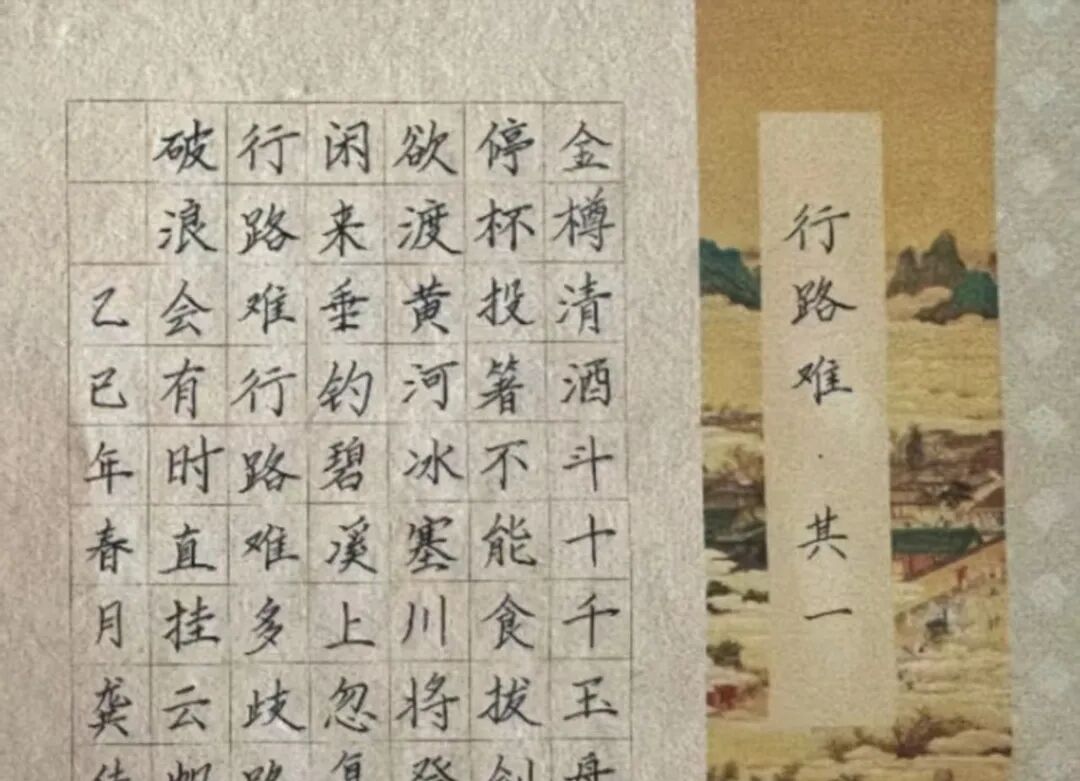 行路难·其一
金樽清酒斗十千玉盘
停杯投箸不能食拔剑
欲渡黄河冰塞川将登
闲来垂钓碧溪上忽复
行路难行路难多歧路
破浪会有时直挂云帆
乙巳年春月龚